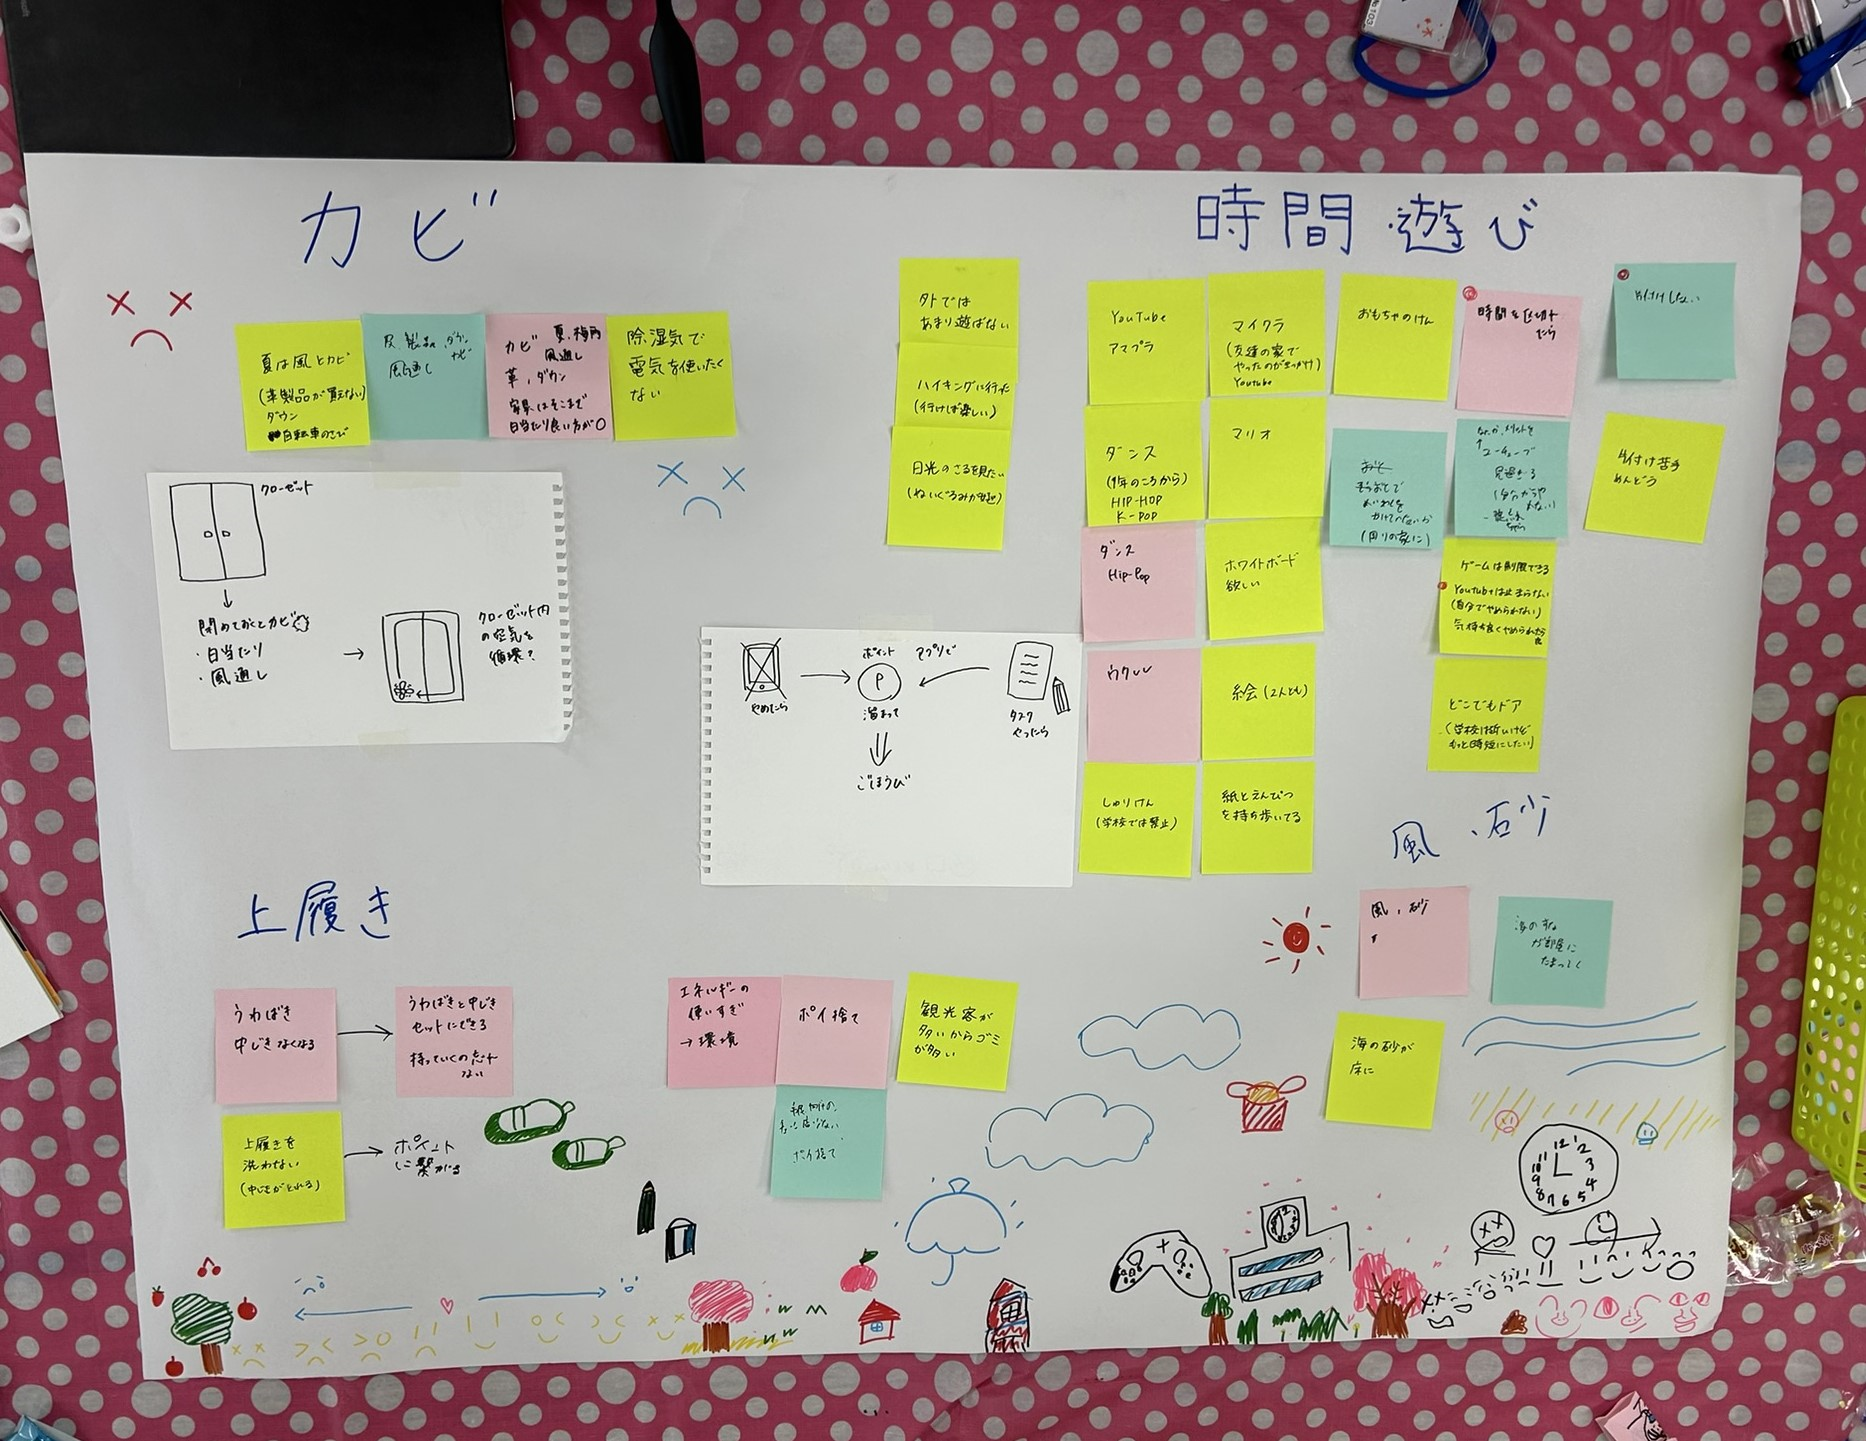 カビ
夏は風とカビ
(革製品が買えない)
ダウン
自転車のさび
皮製品、ダウン
カビ
風通し
カビ 夏、梅雨
風通し
革、ダウン
家具はそこまで
日当たり良い方が○
除湿気で
電気を使いたく
ない
クローゼット
閉めておくとカビ
・日当たり
・風通し
クローゼット内
の空気を
循環?
時間・遊び
外では
あまり遊ばない
ハイキングに行った
(行けば楽しい)
日光のさるを見たい
YouTube
アマプラ
マイクラ
(友達の家で
やったのがきっかけ)
Youtube
おもちゃのけん
時間を区切っ
たら
片付けしない
ダンス
(1年のころから)
HIP-HOP
K-POP
マリオ
片付け苦手
めんどう
ダンス
Hip-Pop
ホワイトボード
欲しい
ゲームは制限できる
Youtubeは止まらない
(自分でやめられない)
気持ち良くやめられたら
良
ウクレレ
絵会(2人とも)
どこでもドア
(学校は近いけど
もっと時短にしたい)
しゅりけん
(学校では禁止)
紙とえんぴつ
を持ち歩いてる
やめたら
ポイント
アプリで
P
溜まって
タスク
やったら
ごほうび
風、砂
風、砂
海のすな
が部屋に
たまってく
海の砂が
床に
上履き
うわばき
中じきなくなる
うわばきと中じき
セットにできる
持っていくの忘れ
ない
上履きを
洗わない
(中じきがとれる)
ポイント
に繋がる
エネルギーの
使いすぎ
→環境
ポイ捨て
観光客が
多いからゴミ
が多い
ポイ捨て
12
1
2
3
4
5
6
7
8
9
10
11